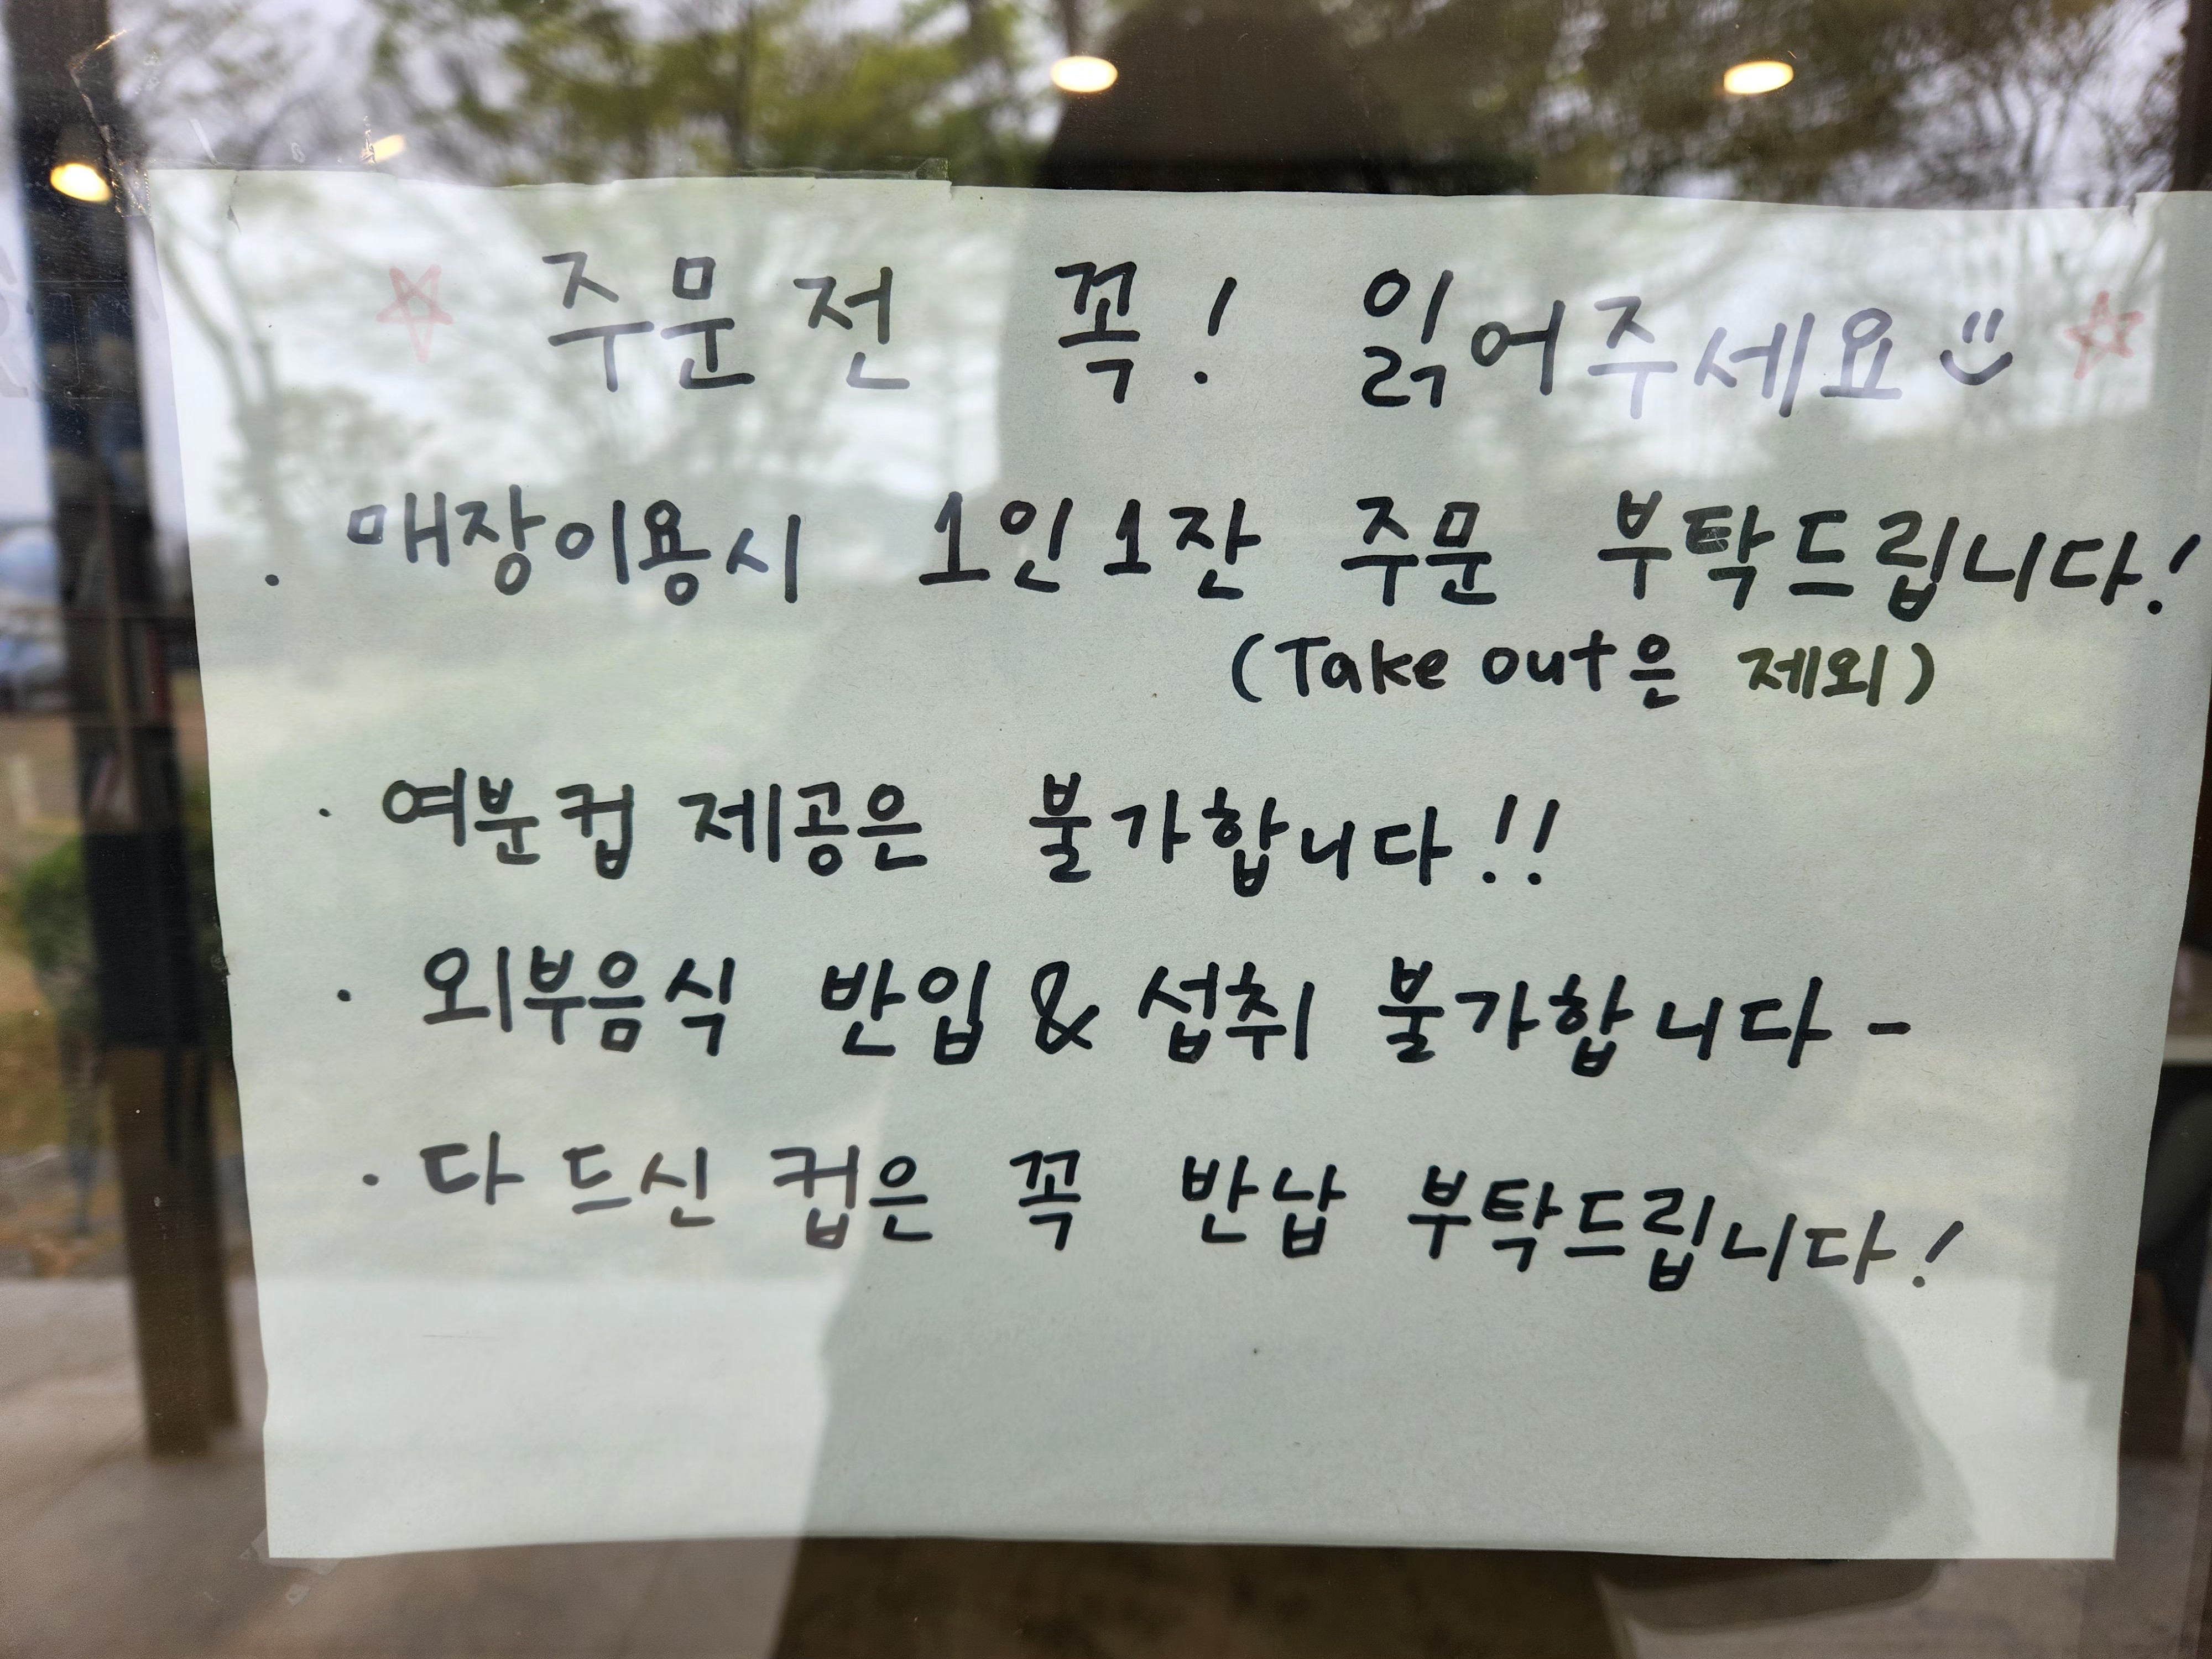 ☆ 주문 전 꼭! 읽어주세요 ☆
. 매장이용시 1인 1잔 주문 부탁드립니다!
(Take out은 제외)
· 여분컵 제공은 불가합니다!!
· 외부음식 반입 & 섭취 불가합니다-
· 다 드신 컵은 꼭 반납 부탁드립니다!